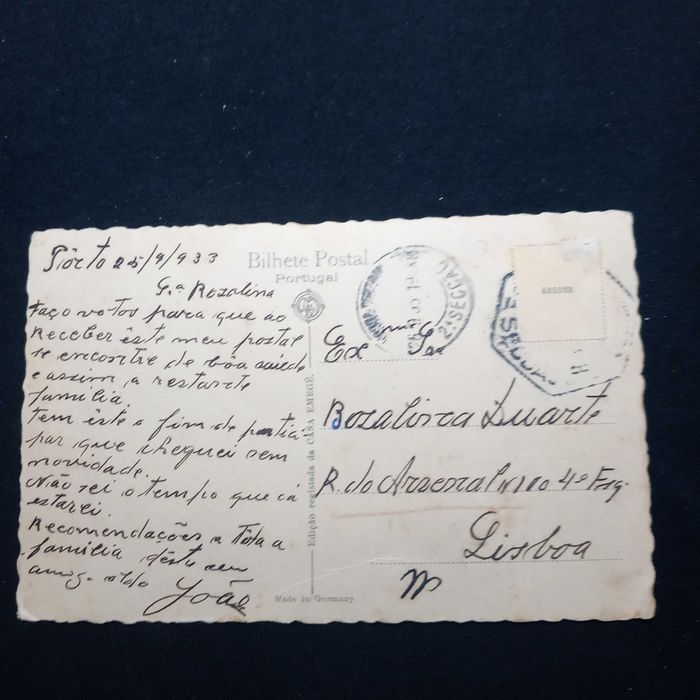 Pôrto 25/9/933
Srª Rozalina
Faço votos para que ao
Receber êste meu postal
se encontre de bôa saúde
e assim a restante
familia.
Tem êste o fim de partici
par que cheguei sem
novidade.
Não sei o tempo que cá
estarei.
Recomendações a tôda a
familia dêste seu
João
Bilhete Postal
Portugal
Edição registada da CASA EMEGÊ.
Made in Germany
2ª SECÇÃO
Exma Sra
Rozalina Duarte
R. do Arsenal nº 100 4º Esq.
Lisboa